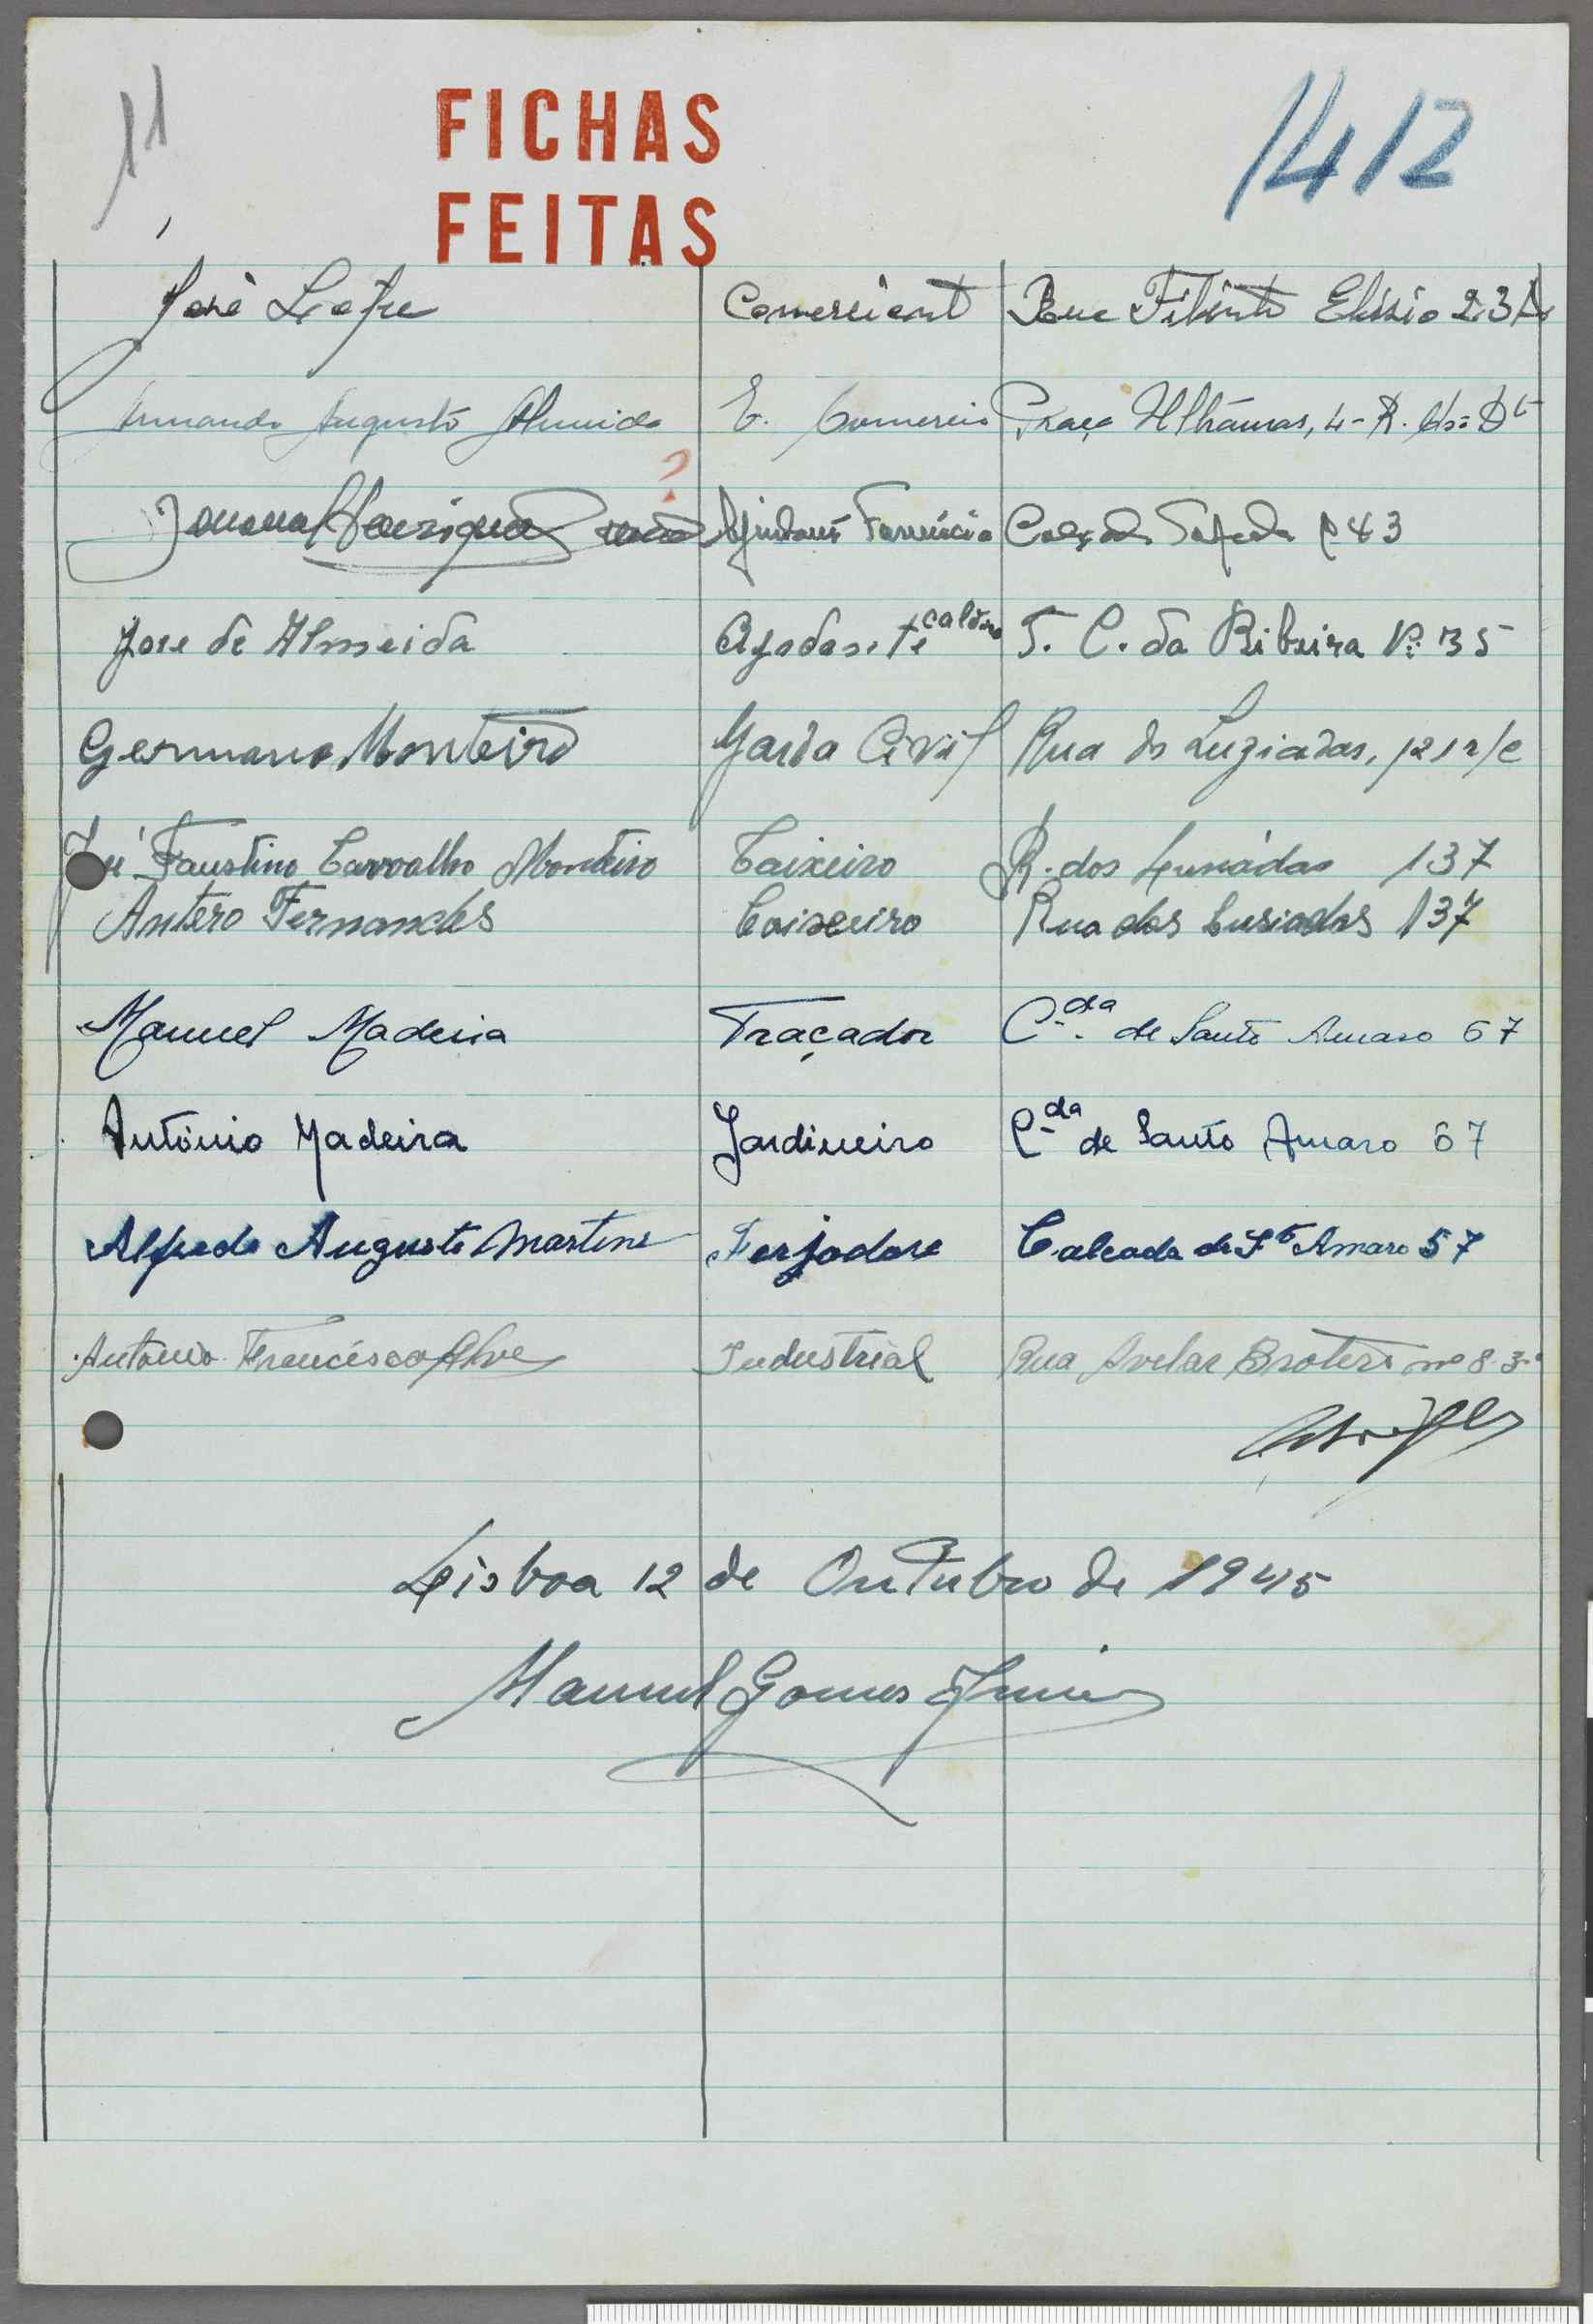 11
FICHAS
FEITAS
1412
José Comerciant Rua Filinto Elísio 23A
Armando Augusto Almeida E. Comercio Praça 4-R.
? Henriques Ajudant Farmácia Calçada Tapada 43
Jose de Almeida Ajodante caldro T. C. da Ribeira Nº 35
Germano Monteiro Garda Civil Rua ds Luziadas, 121 r/c
José Faustino Carvalho Monteiro Caixeiro R. dos Lusiádas 137
Antero Fernandes Caixeiro Rua dos Lusiadas 137
Manuel Madeira Traçador C.da de Santo Amaro 67
António Madeira Jardineiro C.da de Santo Amaro 67
Alfredo Augusto Martins Forjadore Calcada de Sto Amaro 57
António Francisco Alves Industrial Rua Avelar Brotero nº 8-3º
Lisboa 12 de Outubro de 1945
Manuel Gomes Junior